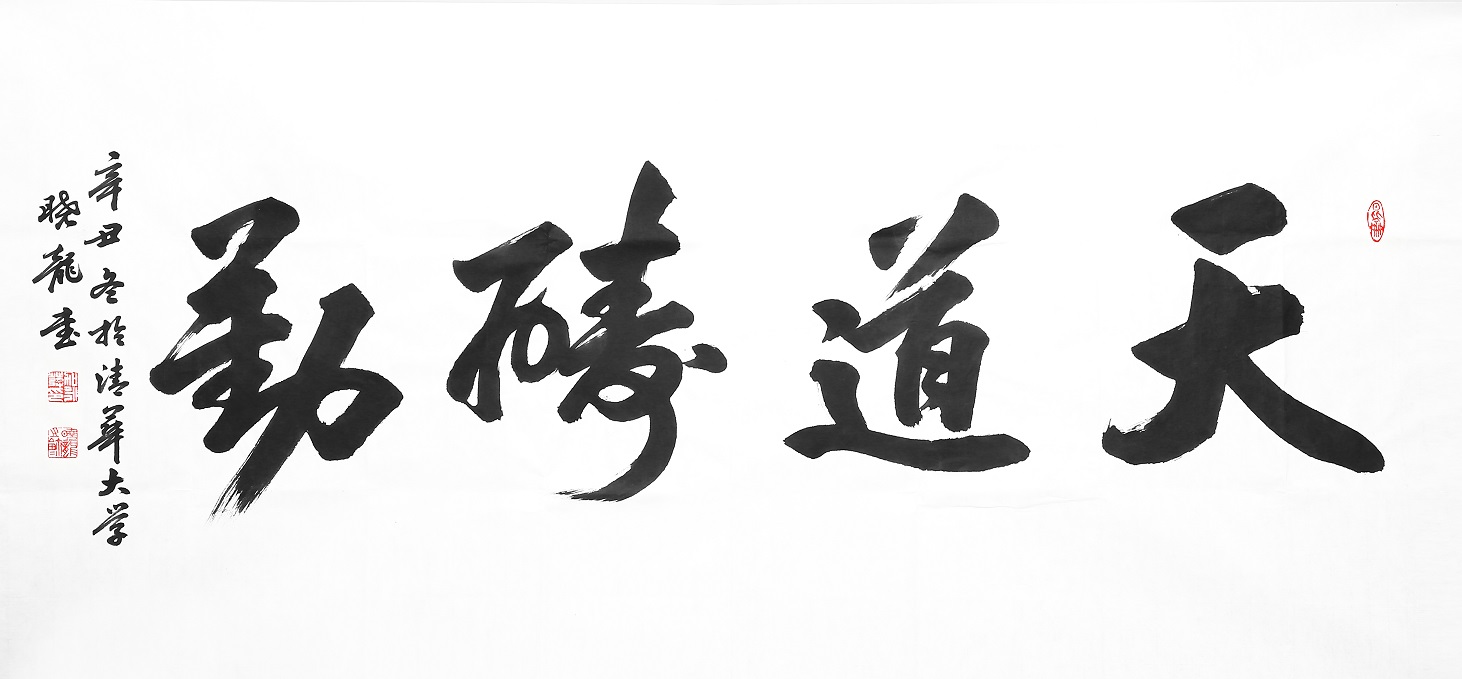 天道醻勤
辛丑冬於清華大学
晓龍書